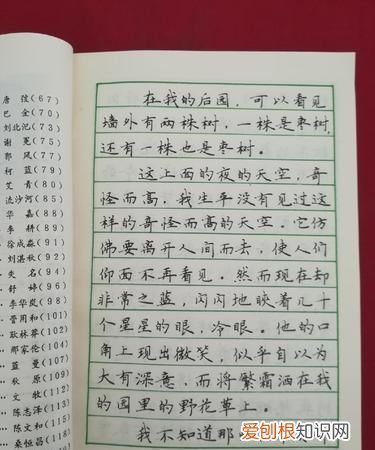 唐弢(67)
巴金(70)
刘北汜(73)
谢冕(75)
郭风(77)
柯蓝(80)
艾青(80)
流沙河(85)
华嘉(88)
李耕(89)
徐成淼(90)
刘湛秋(92)
失名(94)
舒婷(96)
李华岚(98)
管用和(101)
耿林莽(104)
那家伦(104)
蓝曼(107)
秋原(109)
文牧(110)
陈志泽(113)
陈文和(115)
桑恒昌(118)
在我的后园，可以看见
墙外有两株树，一株是枣树，
还有一株也是枣树。
这上面的夜的天空，奇
怪而高，我生平没有见过这
样的奇怪而高的天空。它仿
佛要离开人间而去，使人们
仰面不再看见。然而现在却
非常之蓝，闪闪地䀹着几十
个星星的眼，冷眼。他的口
角上现出微笑，似乎自以为
大有深意，而将繁霜洒在我
的园里的野花草上。
我不知道那
爱刨根知识网
www.baogenzhishi.com